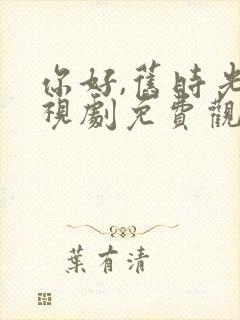 你好,舊時光
視劇免費觀
葉有清